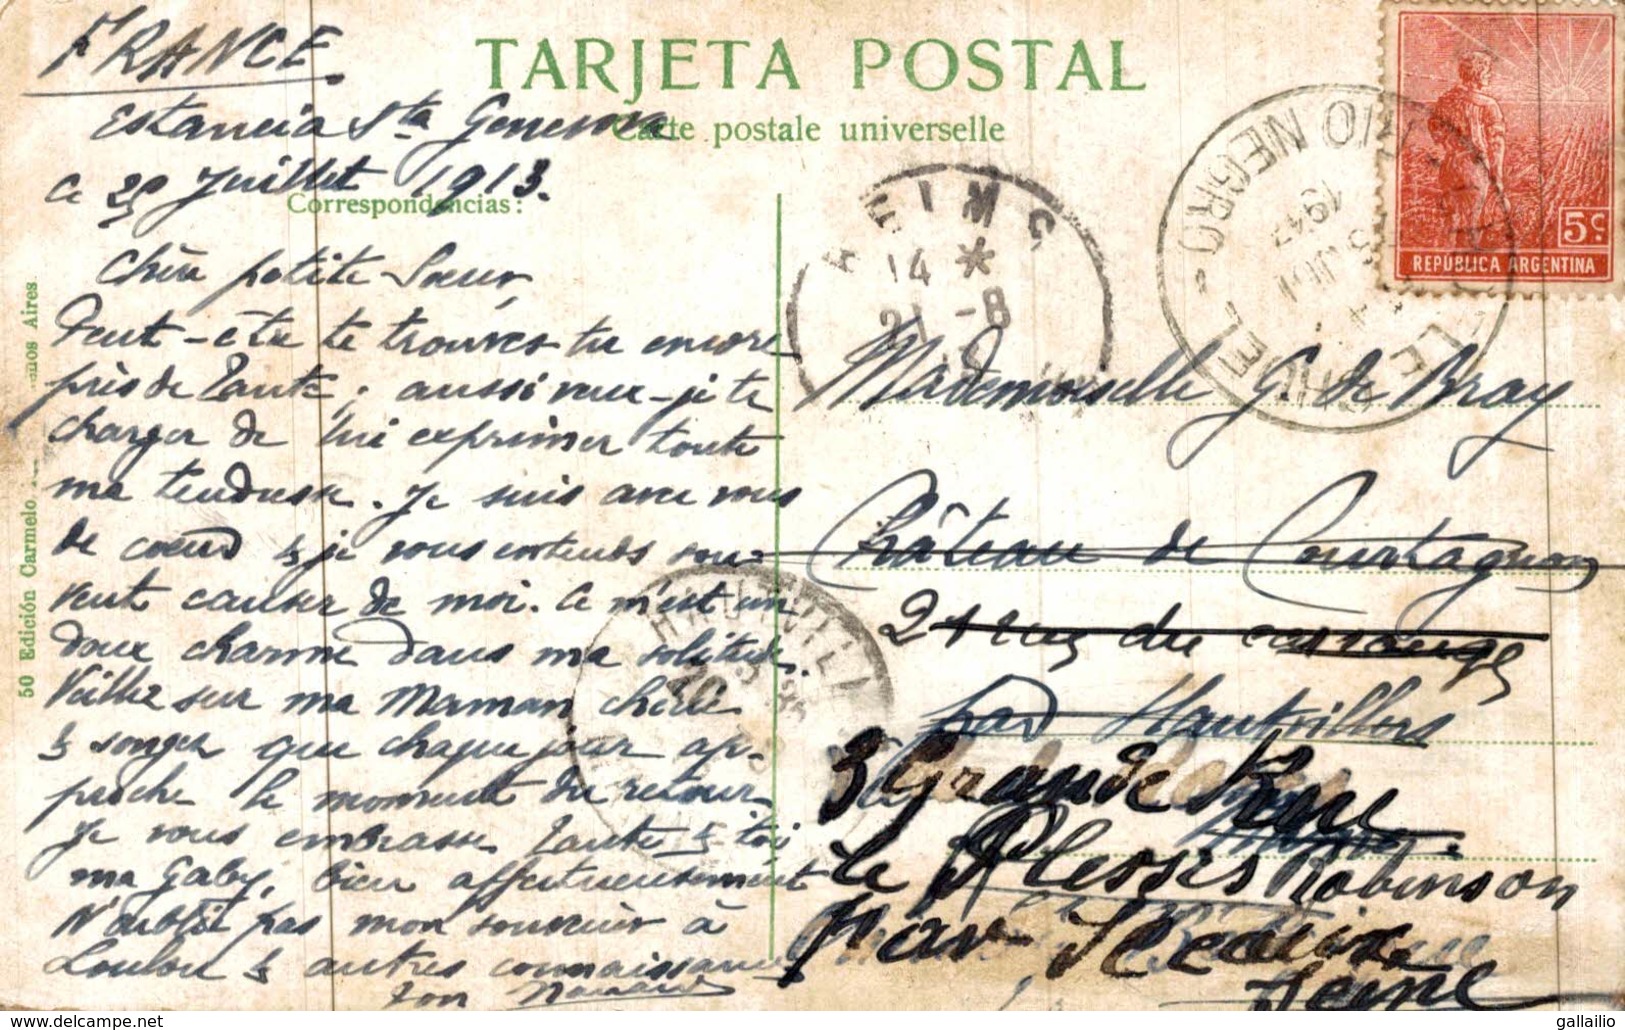 FRANCE
TARJETA POSTAL
Carte postale universelle
Estancia Sta Genoveva
Ce 29 Juillet 1913.
Correspondencias:
Chère petite Sœur,
Peut-être te trouves-tu encore
près de Tante; aussi veux-je te
charger de lui exprimer toute
ma tendresse. Je suis avec vous
de cœur & je vous entends sou-
vent causer de moi. Ce m'est un
doux charme dans ma solitude.
Veillez sur ma Maman chérie
& songez que chaque jour ap-
proche le moment du retour.
Je vous embrasse Tante & toi
ma Gaby, bien affectueusement
N'oublie pas mon souvenir à
Loulou & autres connaissances
ton
50 Edición Carmelo Buenos Aires
REIMS
14 *
21 -8
RIO NEGRO
CHOELE
5 C.
REPÚBLICA ARGENTINA
Mademoiselle G. de Bray
Château de Courtagnon
21 rue du
par Hautvillers
3 Grande Rue
le Plessis Robinson
par Sceaux
Seine
HAUTVILLERS
gallailio